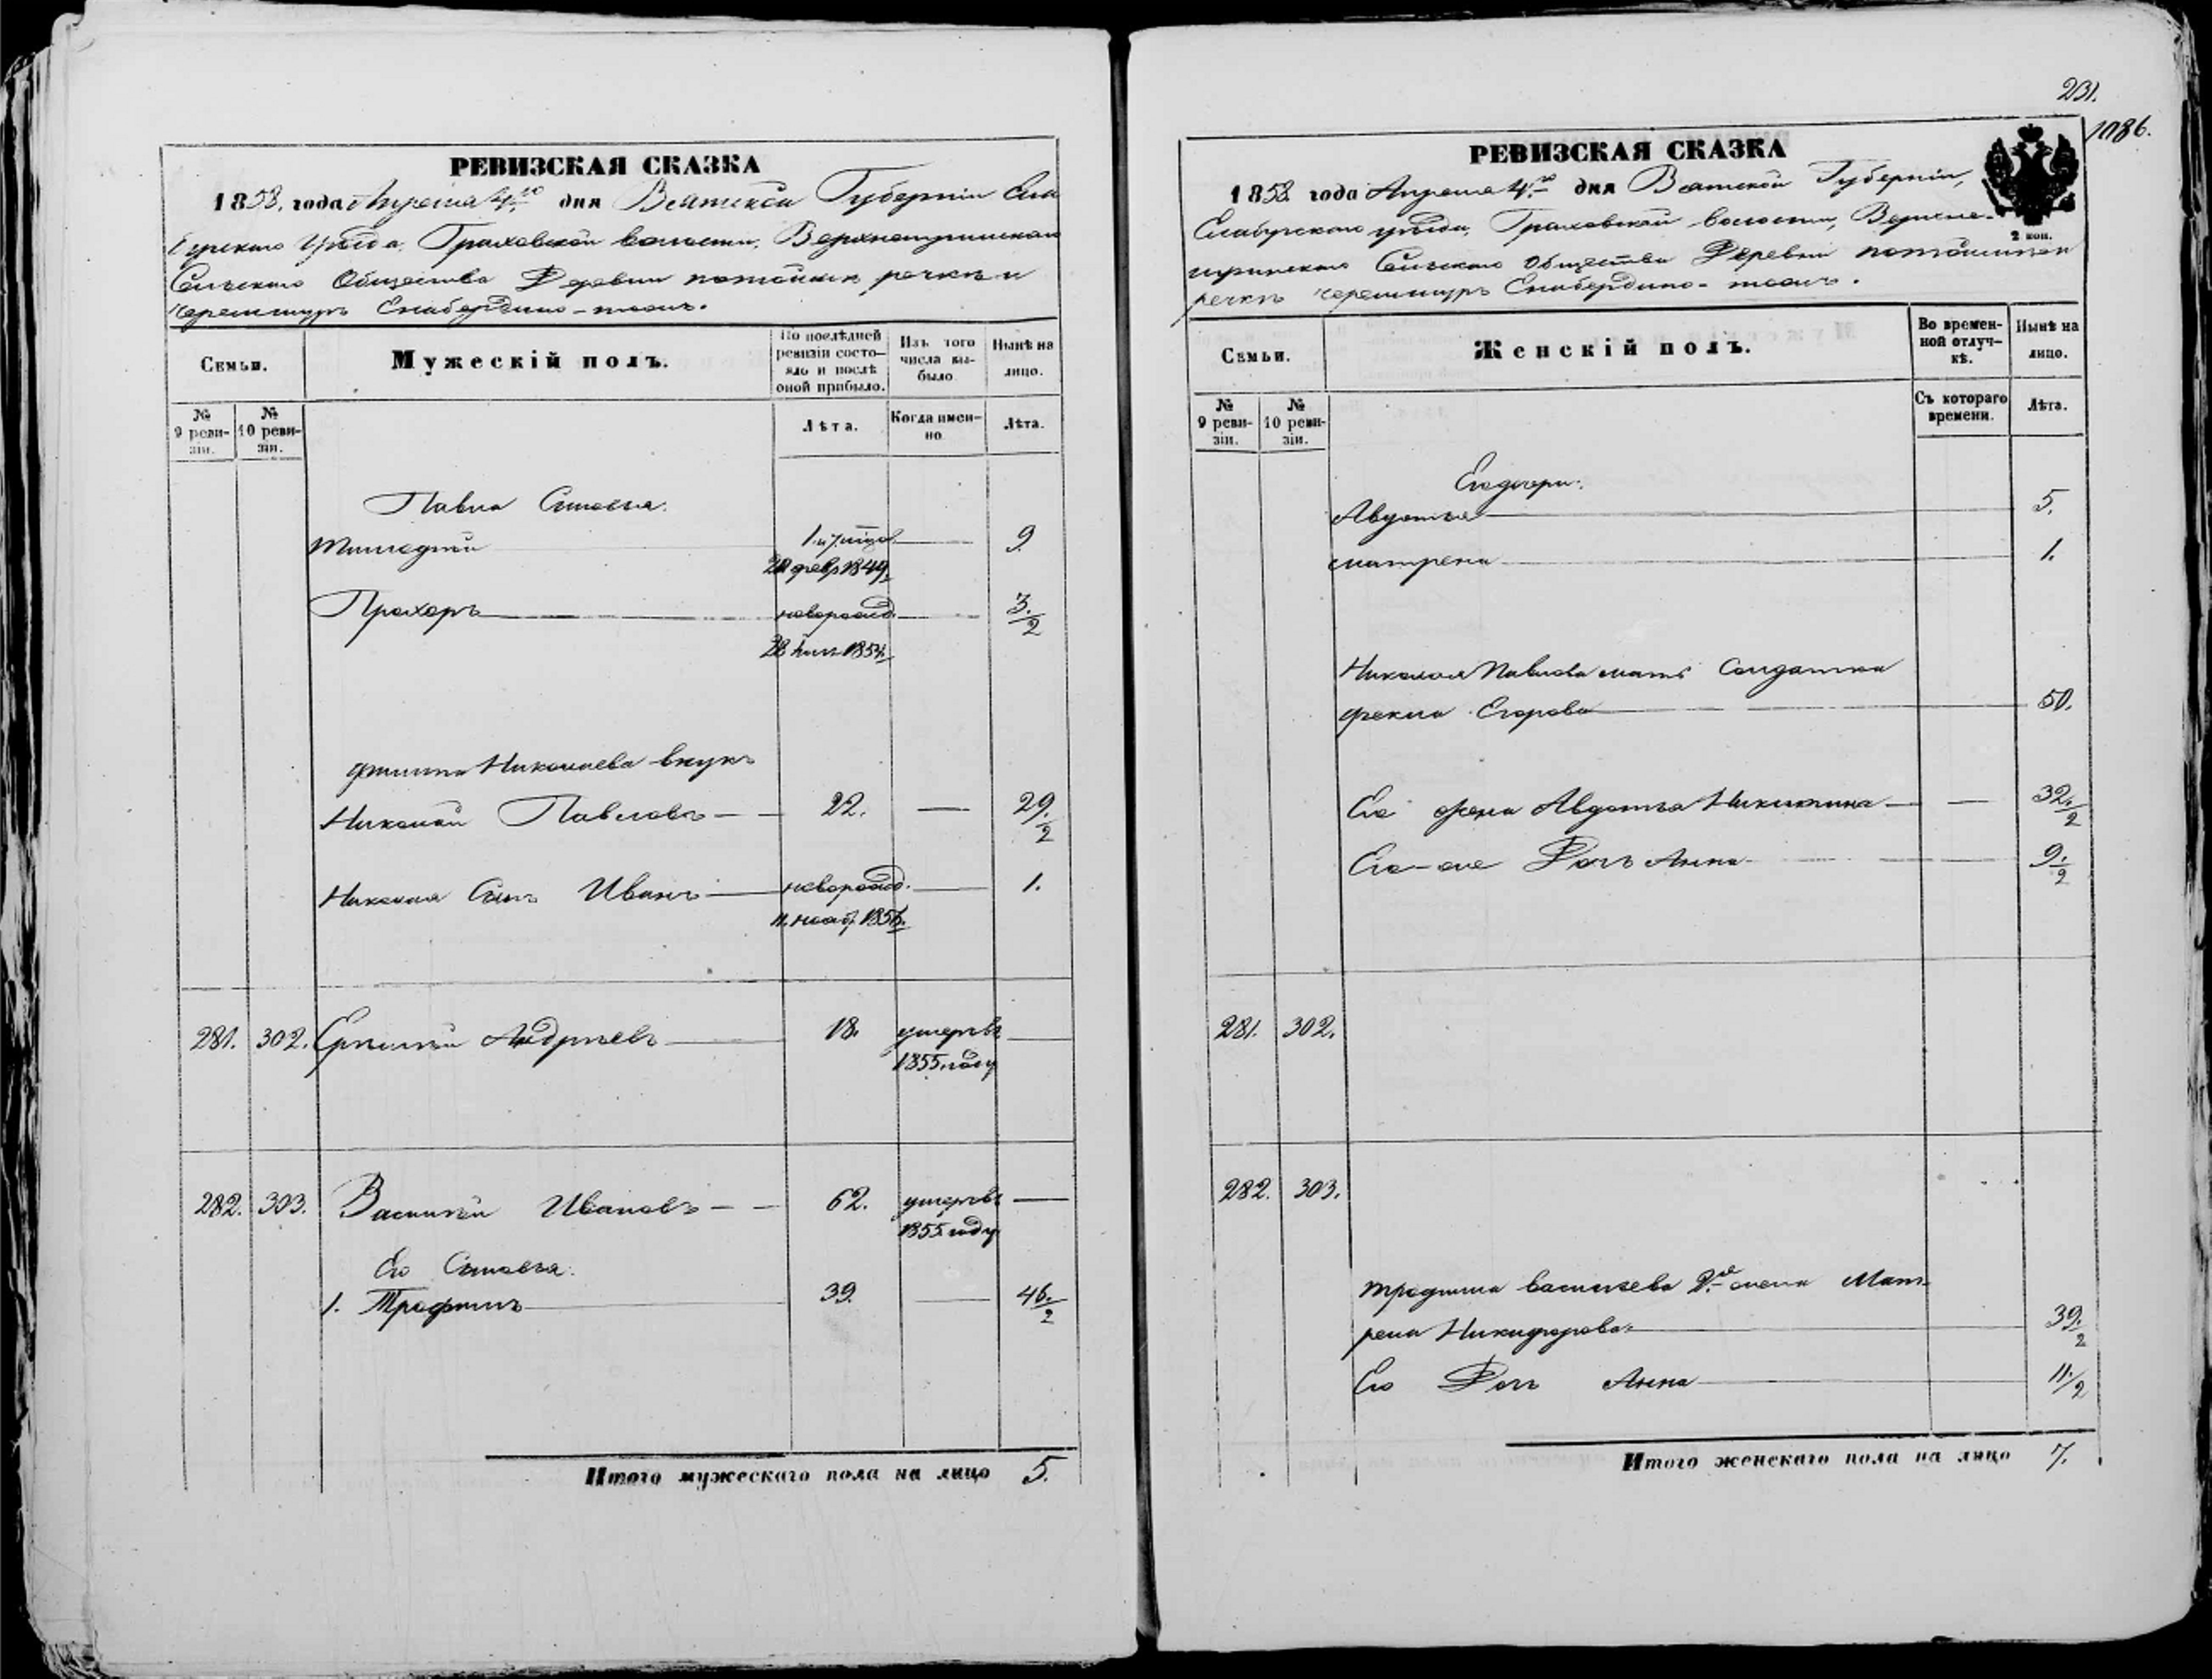 РЕВИЗСКАЯ СКАЗКА
1858. года Апреля 4го дня Вятской Губерніи Ела
бугскаго Уѣзда, Граховской волости, Верхне
Сельскаго Общества Деревни по речкѣ
Семьи.
Мужескій полъ.
По послѣдней ревизіи состояло и послѣ оной прибыло.
Изъ того числа выбыло
Нынѣ на лицо.
№ 9 ревизіи.
№ 10 ревизіи.
Лѣта.
Когда именно
Лѣта.
Павла Сыновья.
9.
февр 1849
Прохоръ новорожд. 3./2
28 1854
Николаева внукъ
Николай Павловъ 22. 29./2
Николая Сынъ Иванъ новорожд. 1.
11. нояб. 1856.
281. 302. Андреевъ 18. умеръ въ
1855. году
282. 303. Василий Ивановъ 62. умеръ въ
1855 году
Его Сыновья.
1. Трофимъ 39. 46./2
Итого мужескаго пола на лицо 5.
231.
1086.
РЕВИЗСКАЯ СКАЗКА
1858. года Апреля 4го дня Вятской Губерніи,
Елабугскаго уѣзда, Граховской волости, Верхне-
Сельскаго Общества Деревни
речкѣ
2 коп.
Семьи.
Женскій полъ.
Во временной отлучкѣ.
Нынѣ на лицо.
№ 9 ревизіи.
№ 10 ревизіи.
Съ котораго времени.
Лѣта.
Его дочери:
Авдотья 5.
Матрена 1.
Николая Павлова мать Солдатка
Фекла Егорова 50.
Его жена Авдотья Никитина 32./2
Его-же Дочь Анна 9./2
281. 302.
282. 303.
Трофима Васильева 2я жена Мат-
рена Никифорова 39./2
Его Дочь Анна 11./2
Итого женскаго пола на лицо 7.